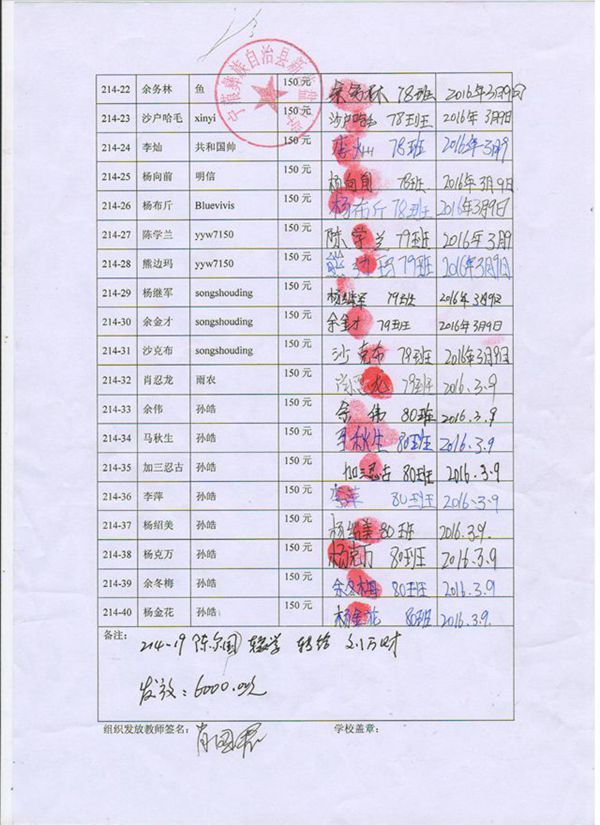 宁蒗彝族自治县新
214-22 余务林 鱼 150元 余务林 78班 2016年3月9日
214-23 沙户哈毛 xinyi 150元 沙户哈毛 78班 2016年3月9日
214-24 李灿 共和国帅 150元 李灿 78班 2016年3月9
214-25 杨向前 明信 150元 杨向前 78班 2016年3月9日
214-26 杨布斤 Bluevivis 150元 杨布斤 78班 2016年3月9日
214-27 陈学兰 yyw7150 150元 陈学兰 79班 2016年3月9
214-28 熊边玛 yyw7150 150元 熊边玛 79班 2016年3月9日
214-29 杨继军 songshouding 150元 杨继军 79班 2016年3月9日
214-30 余金才 songshouding 150元 余金才 79班 2016年3月9日
214-31 沙克布 songshouding 150元 沙克布 79班 2016年3月9日
214-32 肖忍龙 雨农 150元 肖忍龙 79班 2016.3.9
214-33 余伟 孙皓 150元 余伟 80班 2016.3.9
214-34 马秋生 孙皓 150元 马秋生 80班 2016.3.9
214-35 加三忍古 孙皓 150元 加三忍古 80班 2016.3.9
214-36 李萍 孙皓 150元 李萍 80班 2016.3.9
214-37 杨绍美 孙皓 150元 杨绍美 80班 2016.3.9.
214-38 杨克万 孙皓 150元 杨克万 80班 2016.3.9.
214-39 余冬梅 孙皓 150元 余冬梅 80班 2016.3.9
214-40 杨金花 孙皓 150元 杨金花 80班 2016.3.9.
备注：
214-19 陈尔国 转学 转给 刘万财
发放：6000.00元
组织发放教师签名： 肖国君 学校盖章：